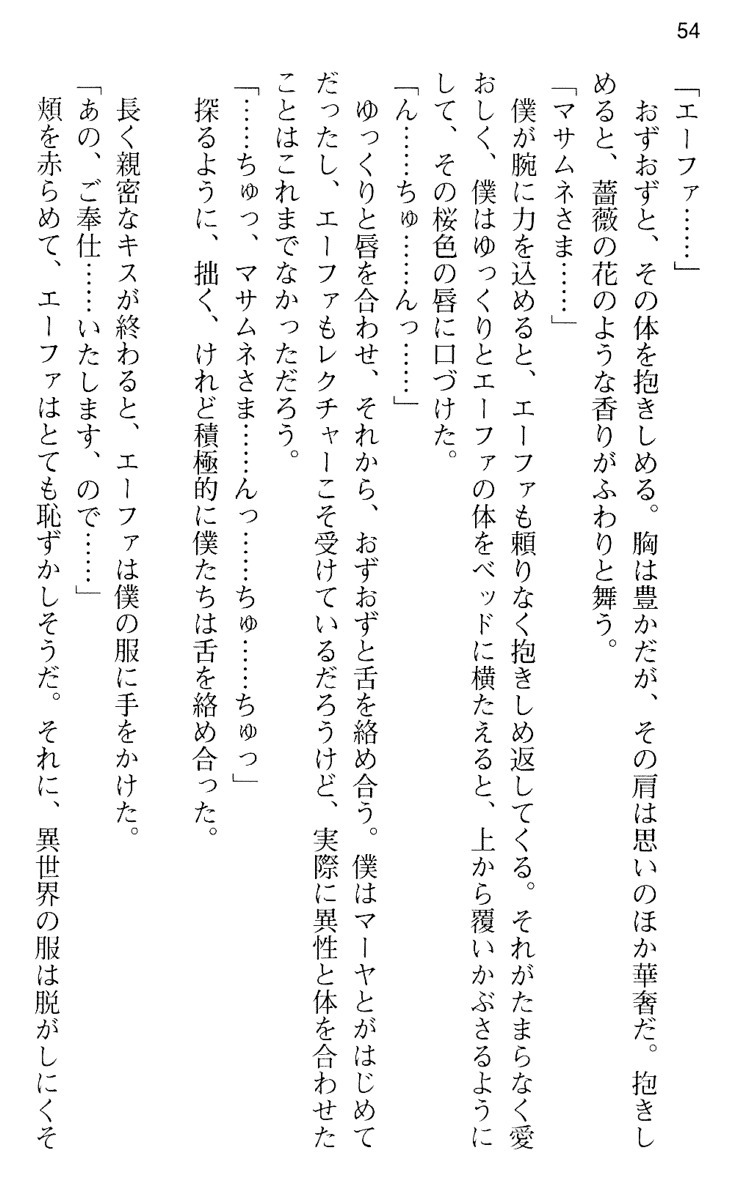 54
「エーファ……」
　おずおずと、その体を抱きしめる。胸は豊かだが、その肩は思いのほか華奢だ。抱きし
めると、薔薇の花のような香りがふわりと舞う。
「マサムネさま……」
　僕が腕に力を込めると、エーファも頼りなく抱きしめ返してくる。それがたまらなく愛
おしく、僕はゆっくりとエーファの体をベッドに横たえると、上から覆いかぶさるように
して、その桜色の唇に口づけた。
「ん……ちゅ……んっ……」
　ゆっくりと唇を合わせ、それから、おずおずと舌を絡め合う。僕はマーヤとがはじめて
だったし、エーファもレクチャーこそ受けているだろうけど、実際に異性と体を合わせた
ことはこれまでなかっただろう。
「……ちゅっ、マサムネさま……んっ……ちゅ……ちゅっ」
　探るように、拙く、けれど積極的に僕たちは舌を絡め合った。
　長く親密なキスが終わると、エーファは僕の服に手をかけた。
「あの、ご奉仕……いたします、ので……」
　頬を赤らめて、エーファはとても恥ずかしそうだ。それに、異世界の服は脱がしにくそ